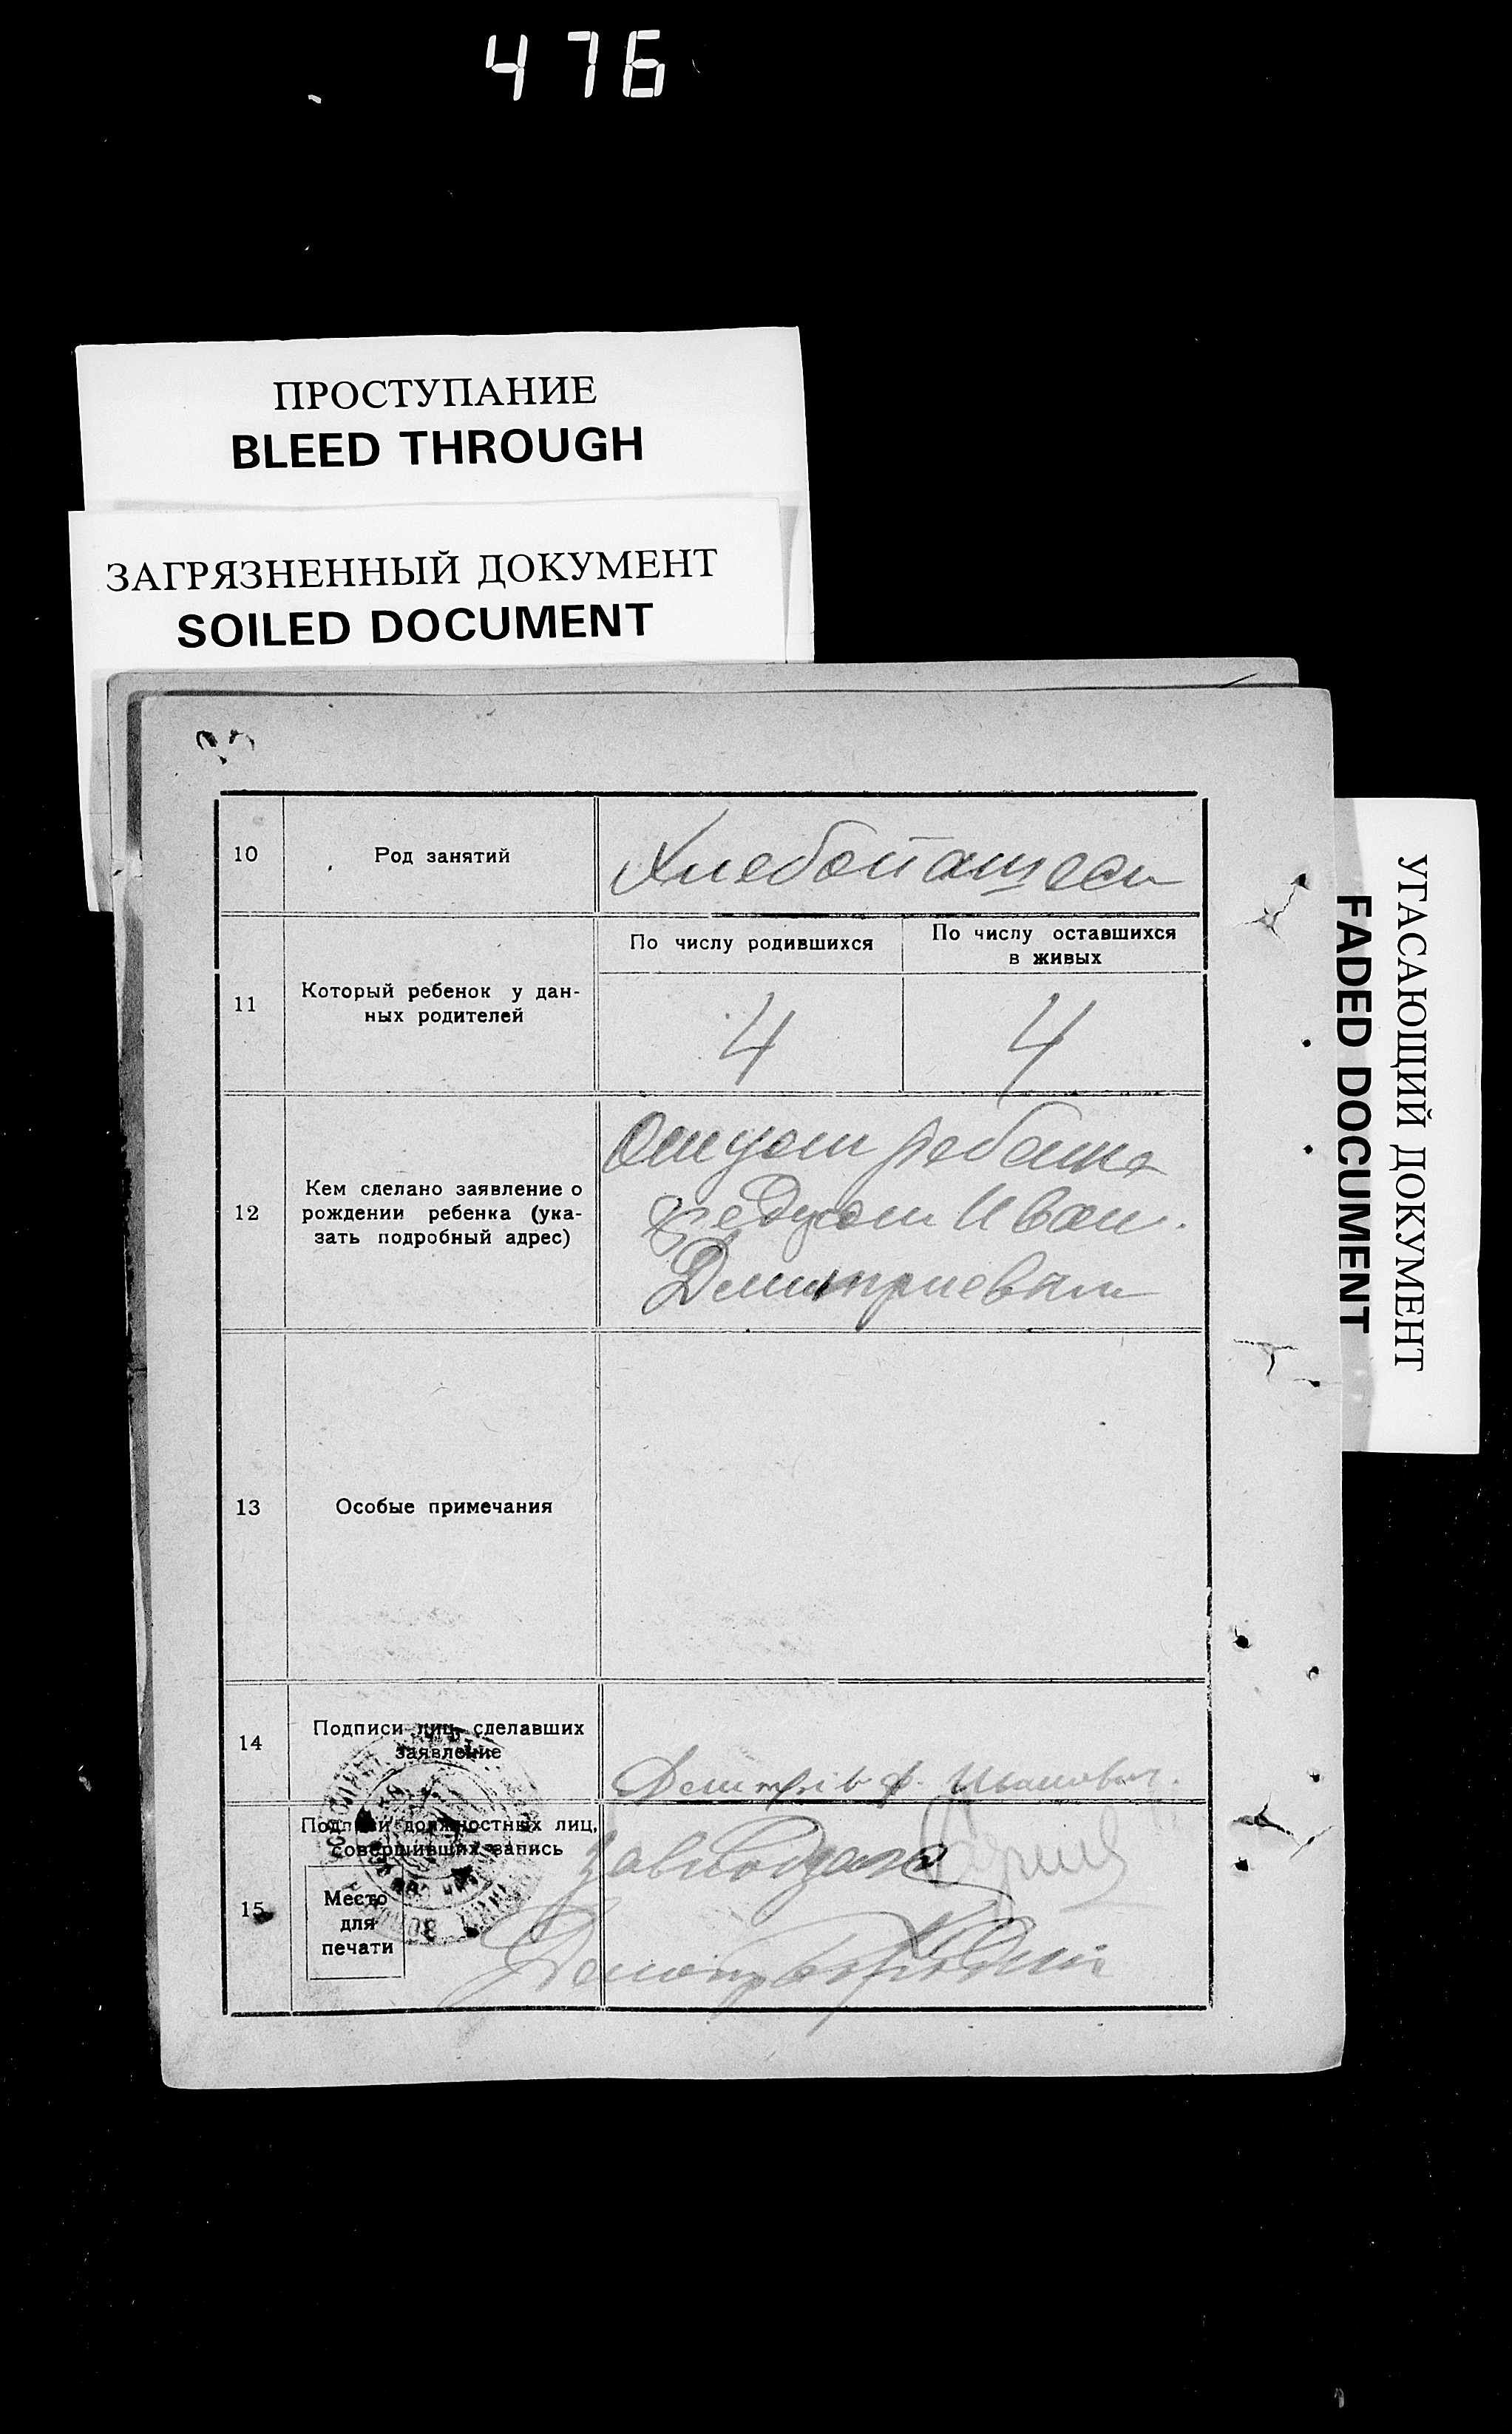 476
ПРОСТУПАНИЕ
BLEED THROUGH
ЗАГРЯЗНЕННЫЙ ДОКУМЕНТ
SOILED DOCUMENT
УГАСАЮЩИЙ ДОКУМЕНТ
FADED DOCUMENT
10
Род занятий
Хлебопашест
11
Который ребенок у дан-
ных родителей
По числу родившихся
По числу оставшихся
в живых
4
4
12
Кем сделано заявление о
рождении ребенка (ука-
зать подробный адрес)
Отцом ребенка
Федуом Иван.
Дмитриевым
13
Особые примечания
14
Подписи лиц, сделавших
заявление
Ф. Иванович.
15
Подписи должностных лиц,
совершивших запись
Место
для
печати